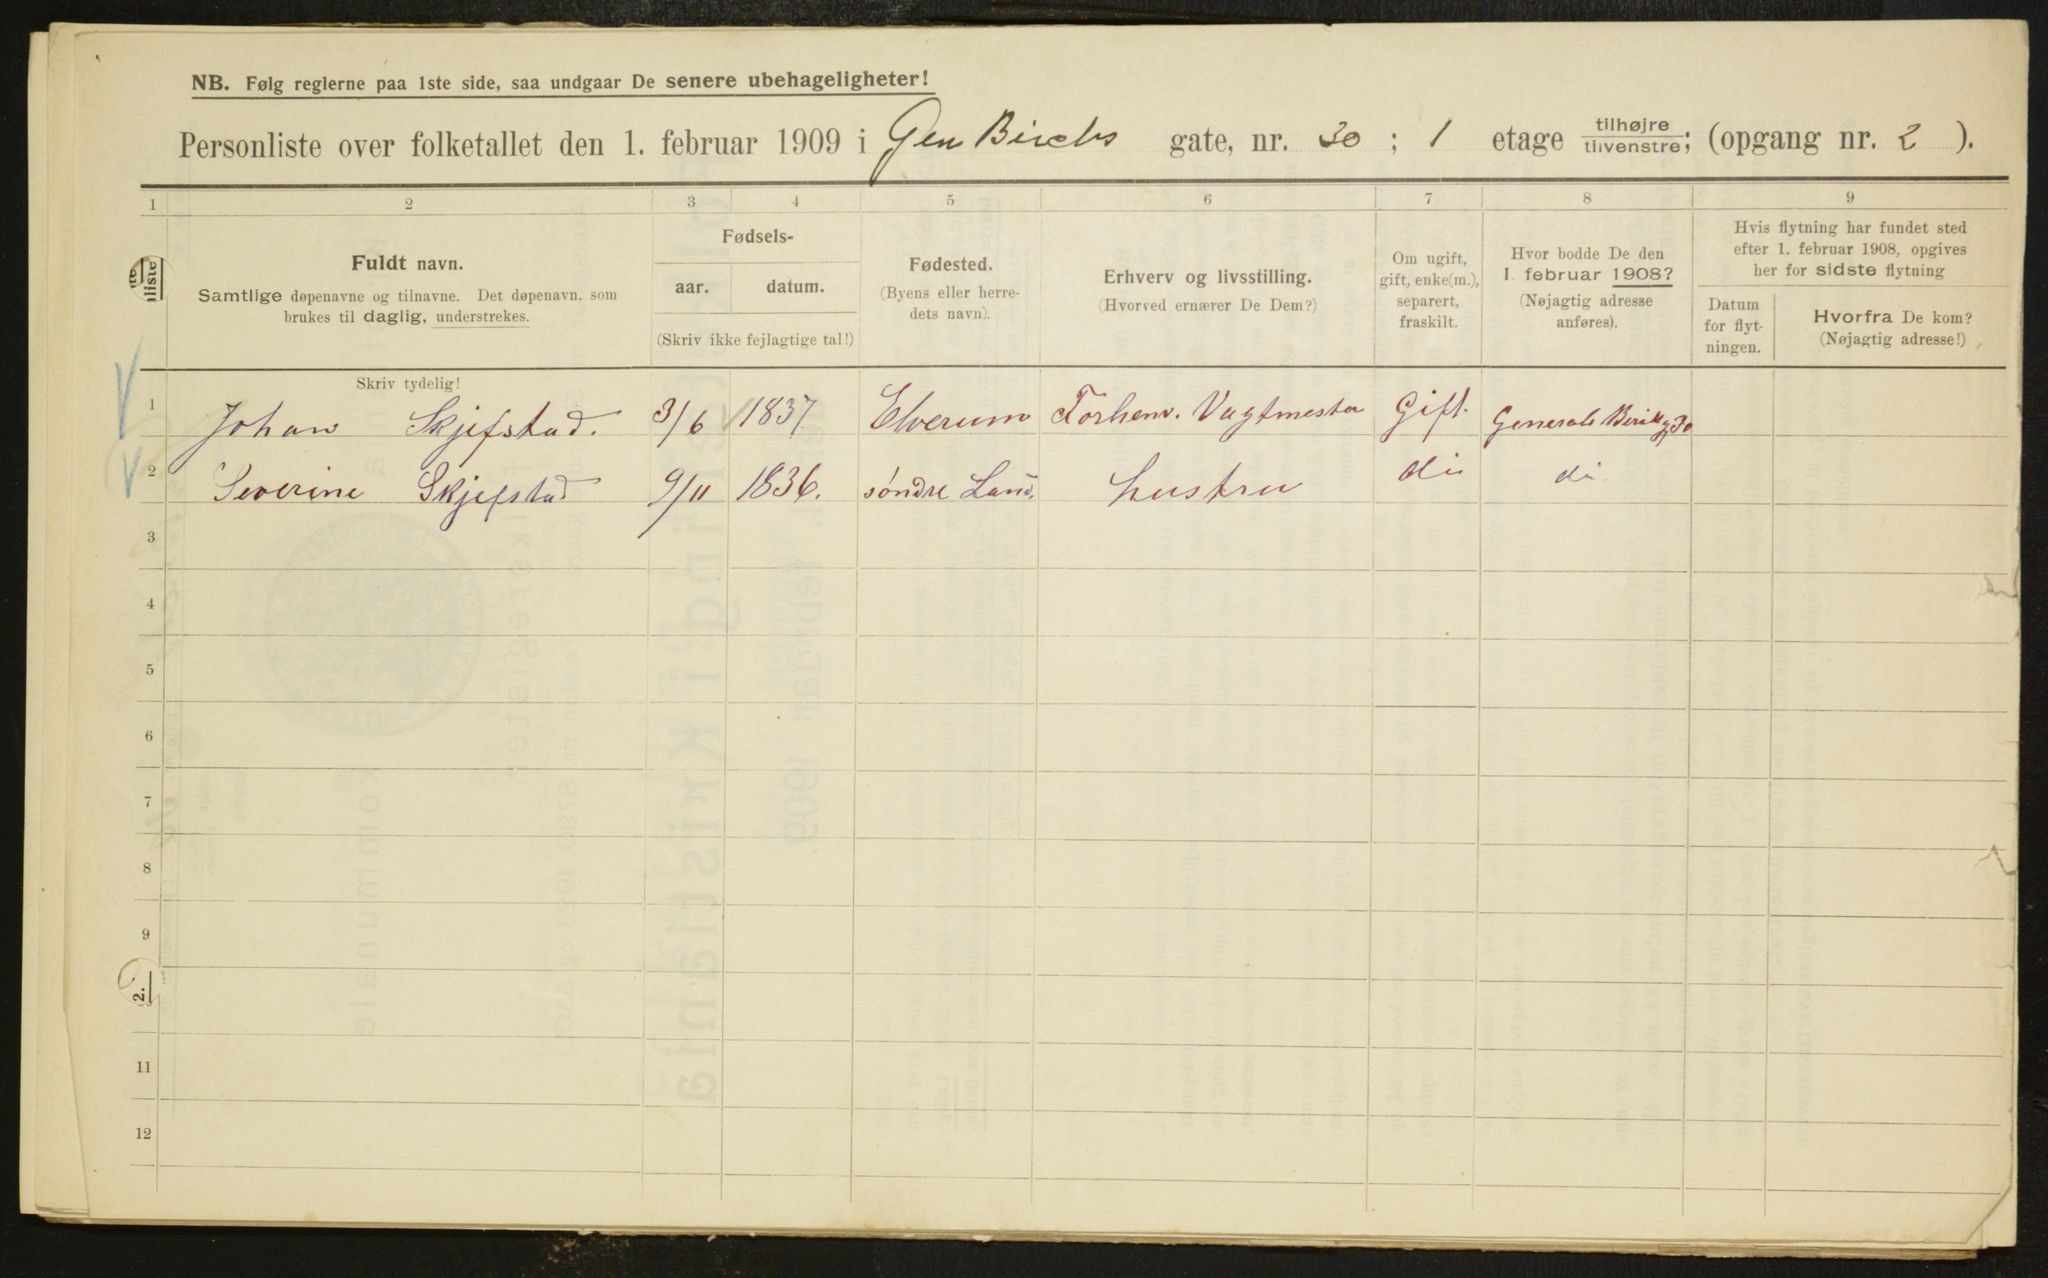 NB. Følg reglerne paa 1ste side, saa undgaar De senere ubehageligheter!
Personliste over folketallet den 1. februar 1909 i Gen Birchs gate, nr. 30 ; 1 etage tilhøjre tilvenstre; (opgang nr. 2 ).
1 2 3 4 5 6 7 8 9
liste
Fuldt navn.
Samtlige døpenavne og tilnavne. Det døpenavn, som
brukes til daglig, understrekes.
Fødsels-
aar. datum.
(Skriv ikke fejlagtige tal!)
Fødested.
(Byens eller herre-
dets navn).
Erhverv og livsstilling.
(Hvorved ernærer De Dem?)
Om ugift,
gift, enke(m.),
separert,
fraskilt.
Hvor bodde De den
1. februar 1908?
(Nøjagtig adresse
anføres).
Hvis flytning har fundet sted
efter 1. februar 1908, opgives
her for sidste flytning
Datum
for flyt-
ningen.
Hvorfra De kom?
(Nøjagtig adresse!)
Skriv tydelig!
1 Johan Skjefstad. 3/6 1837. Elverum Forhenv. Vagtmester Gift. Generals Birchs g 30
2 Severine Skjefstad 9/11 1836. søndre Land. hustru do do
3
4
5
6
7
8
9
2.
11
12